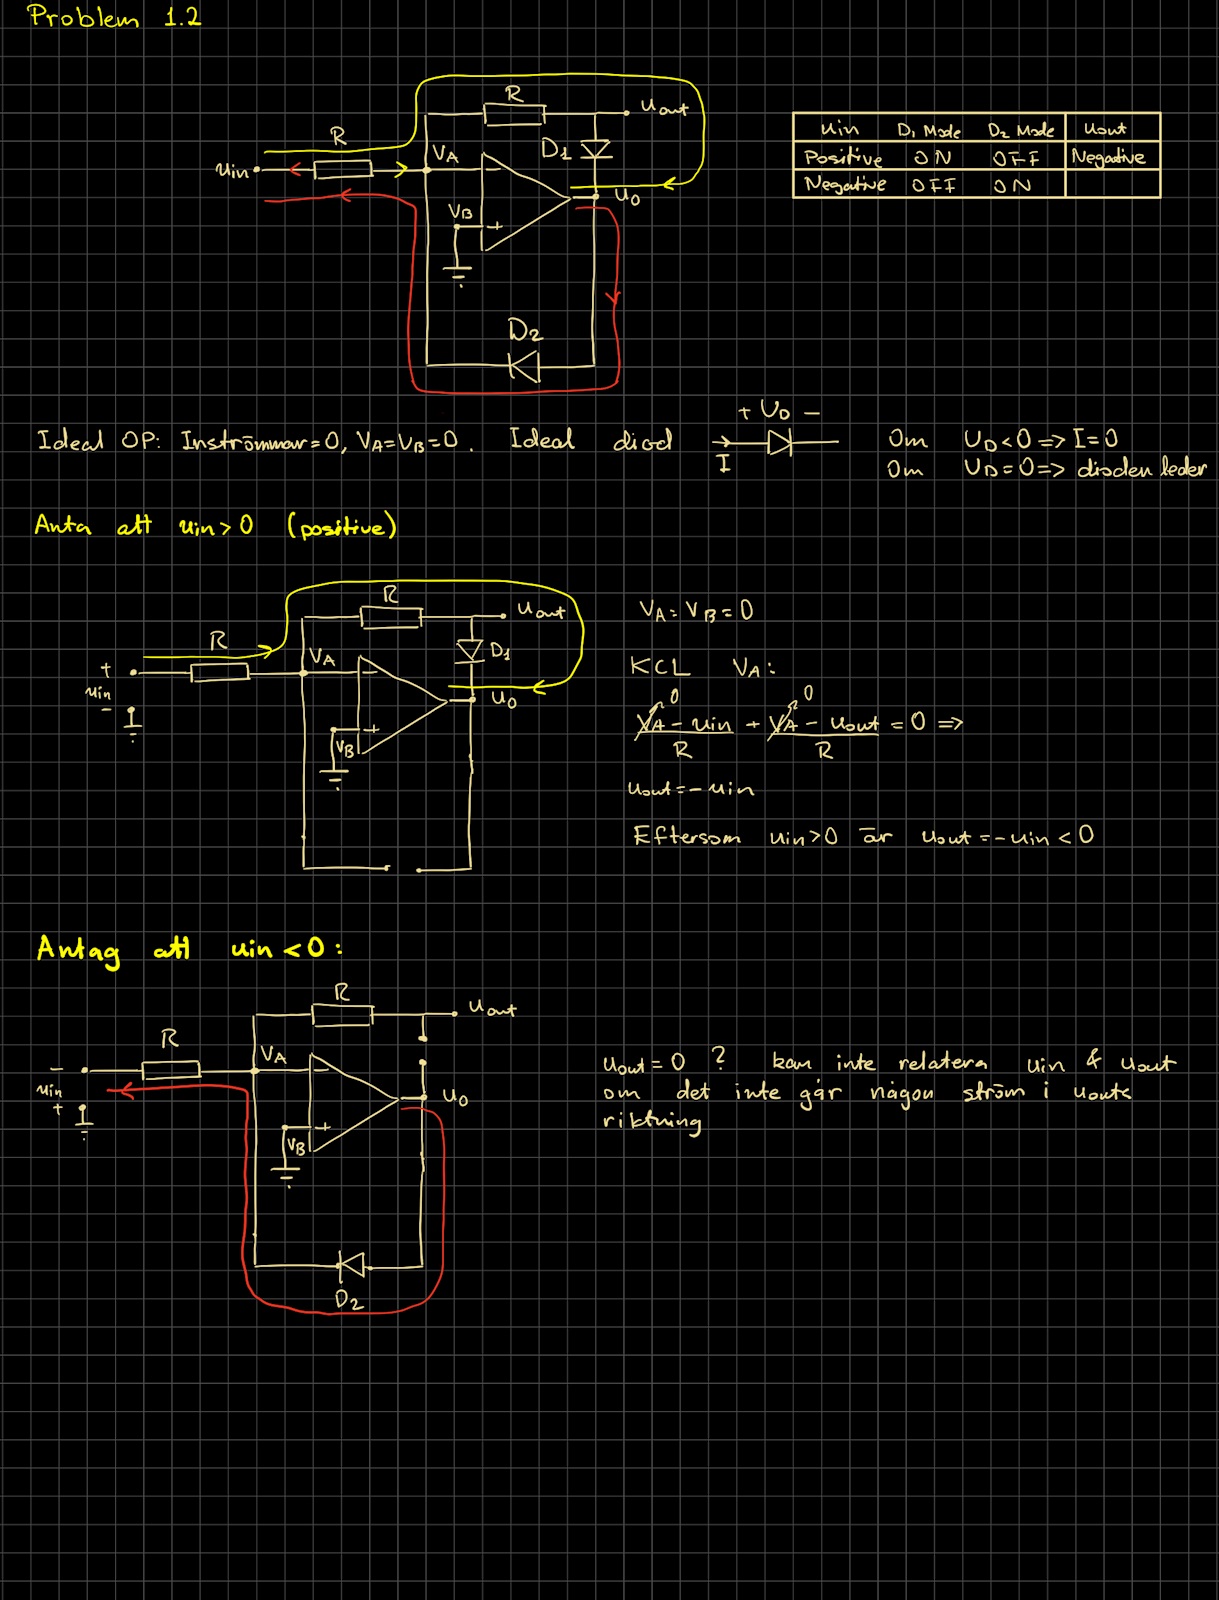 Problem 1.2
R
uout
R
D1
uin
VA
-
u0
VB
+
D2
uin D1 Mode D2 Mode uout
Positive ON OFF Negative
Negative OFF ON
Ideal OP: Inströmmar=0, VA=VB=0. Ideal diod
+ UD -
I
Om UD<0 => I=0
Om UD=0 => dioden leder
Anta att uin>0 (positive)
R
uout
R
D1
+
uin
-
VA
-
u0
VB
+
VA=VB=0
KCL VA:
0 0
VA-uin + VA-uout = 0 =>
R R
uout=-uin
Eftersom uin>0 är uout=-uin<0
Antag att uin<0:
R
uout
R
-
uin
+
VA
-
u0
VB
+
D2
uout=0 ? kan inte relatera uin & uout
om det inte går någon ström i uouts
riktning